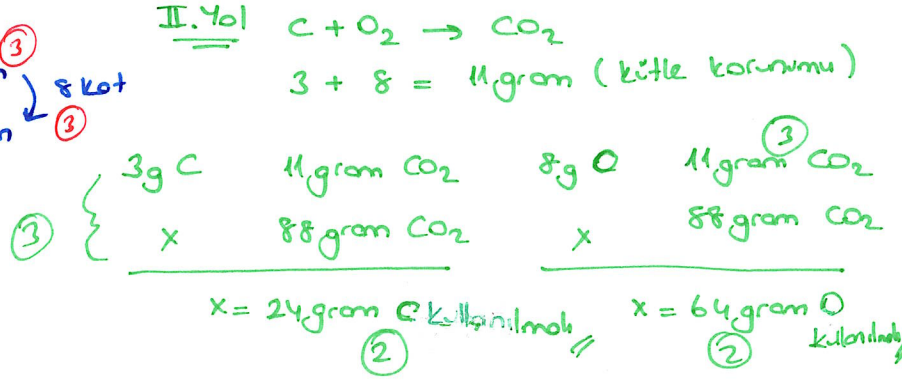 II. Yol
C + O₂ → CO₂
3 + 8 = 11 gram (kütle korunumu)
③
8 kat
③
③
3g C 11 gram CO₂
x 88 gram CO₂
x = 24 gram C kullanılmalı
②
③
8g O 11 gram CO₂
x 88 gram CO₂
x = 64 gram O
kullanılmalı
②